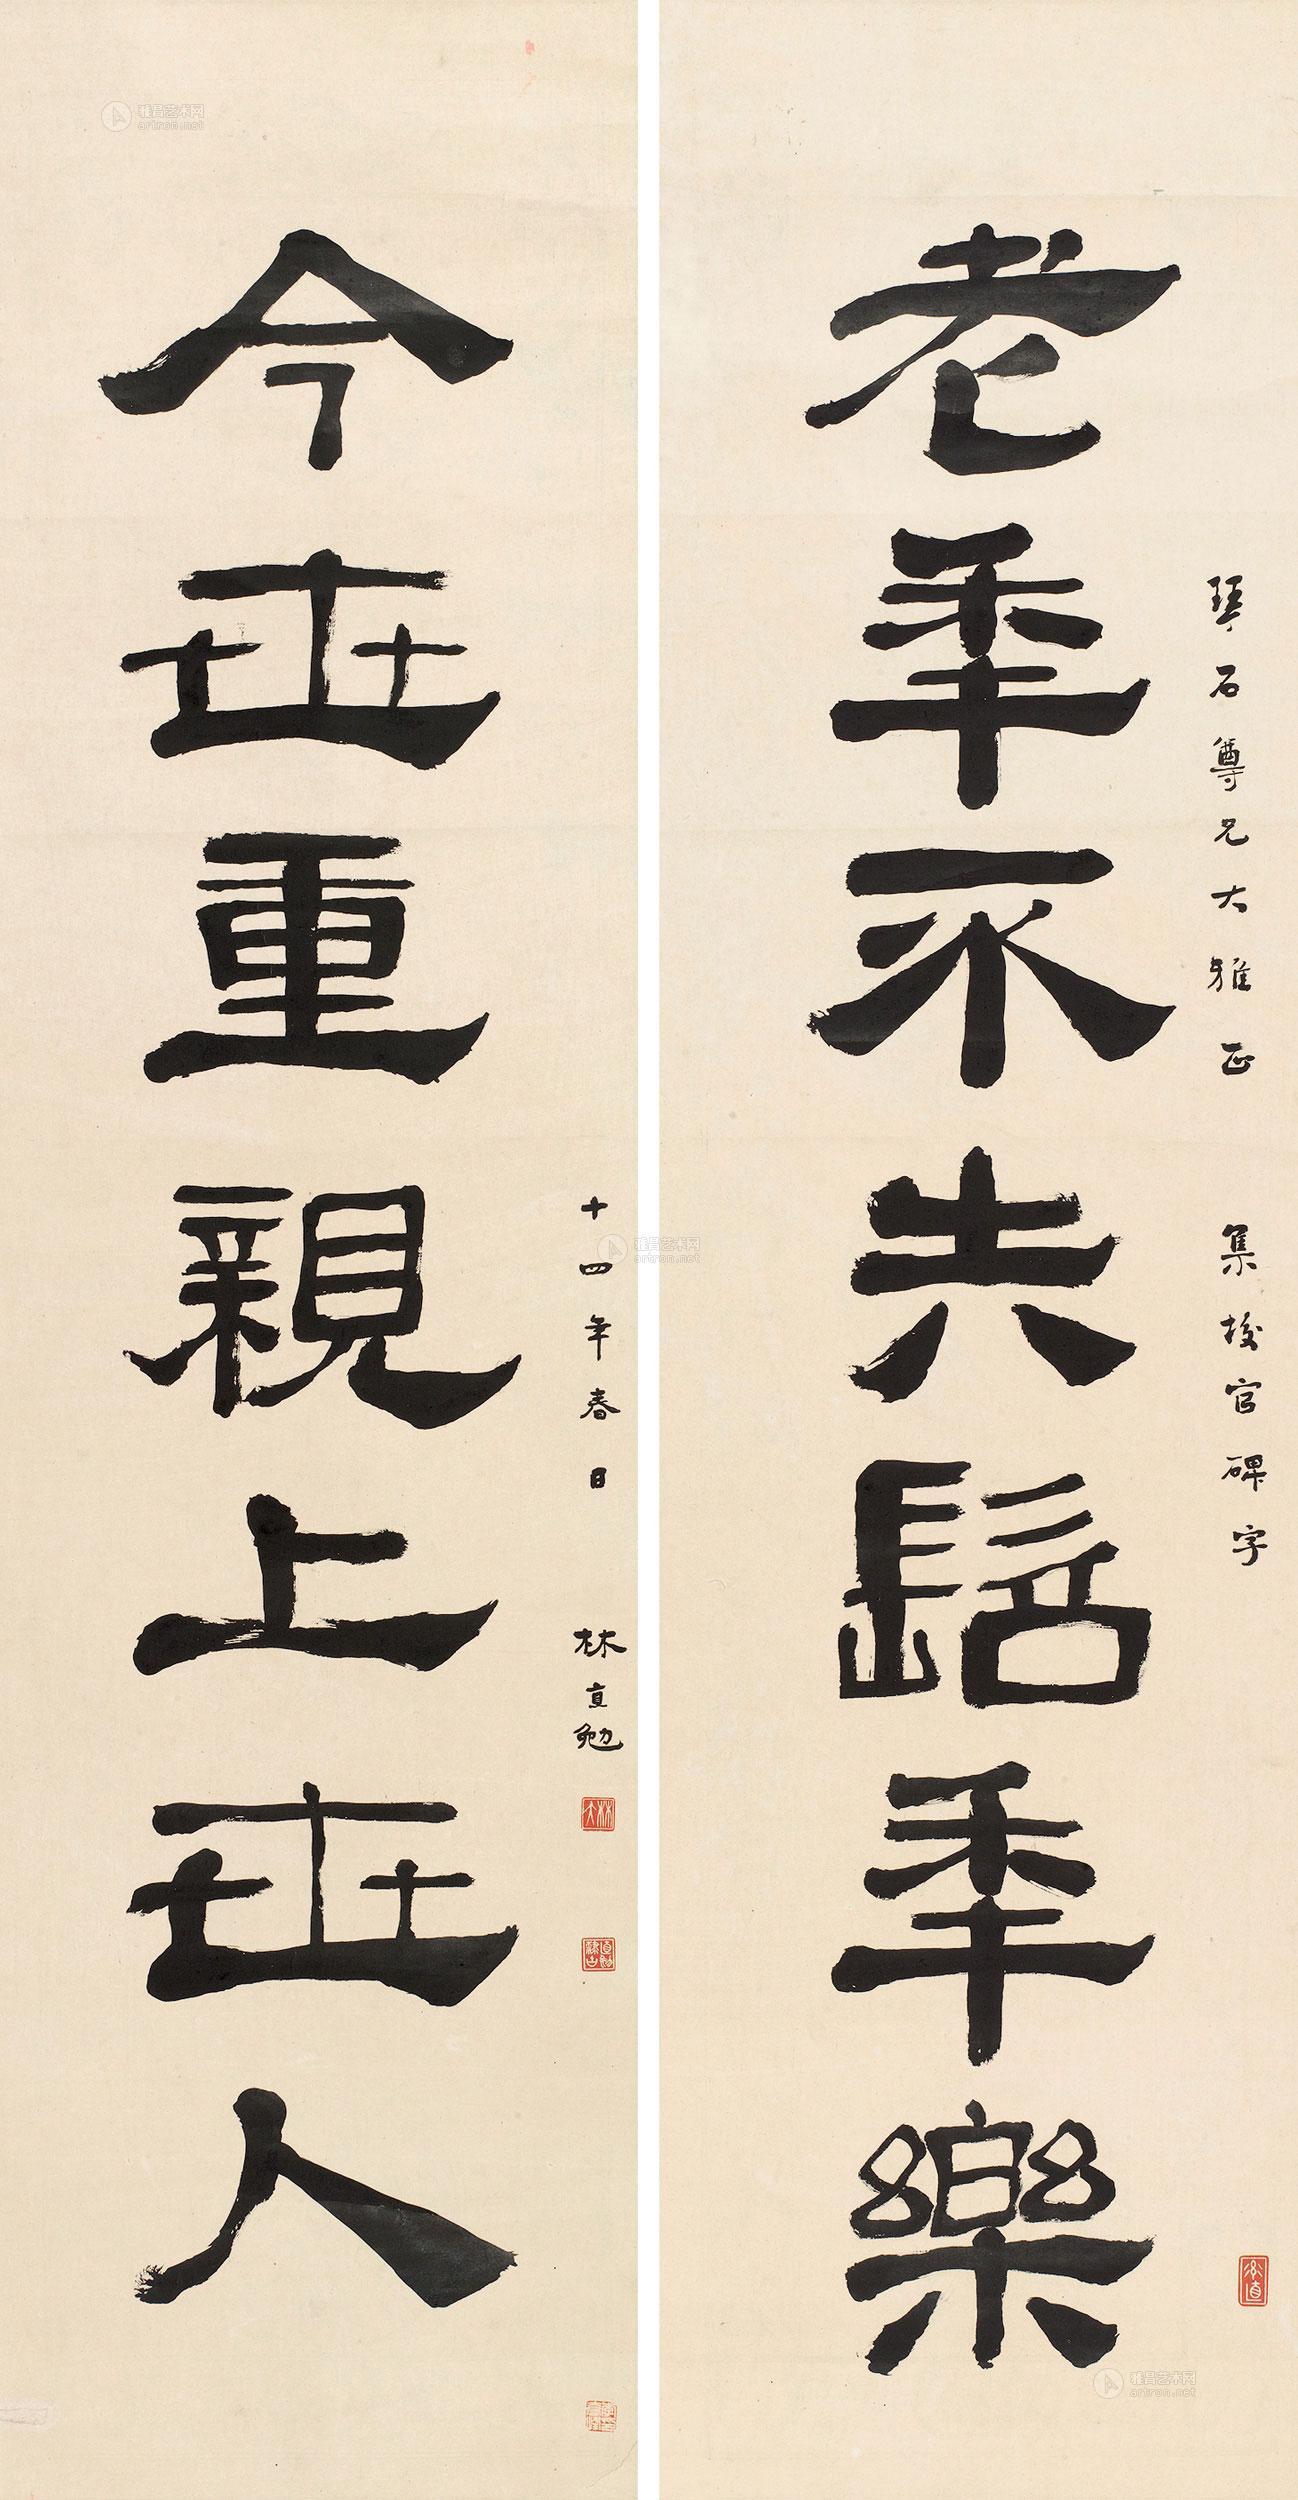 老年不失髫年樂
琴石尊兄大雅正 集校官碑字
今世重親上世人
十四年春日 林直勉
雅昌艺术网
artron.net
雅昌艺术网
artron.net
雅昌艺术网
artron.net